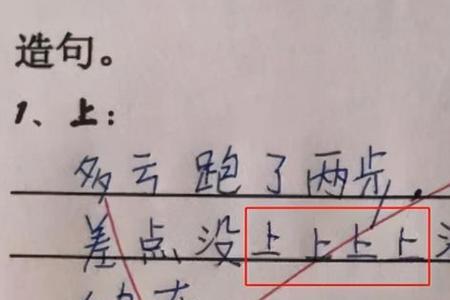 造句。
1、上：
多云跑了两步，
差点没上上上上